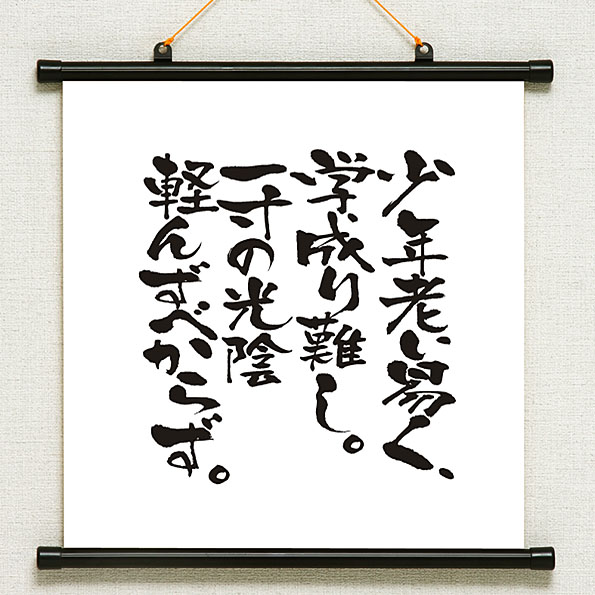 少年老い易く、
学成り難し。
一寸の光陰
軽んずべからず。